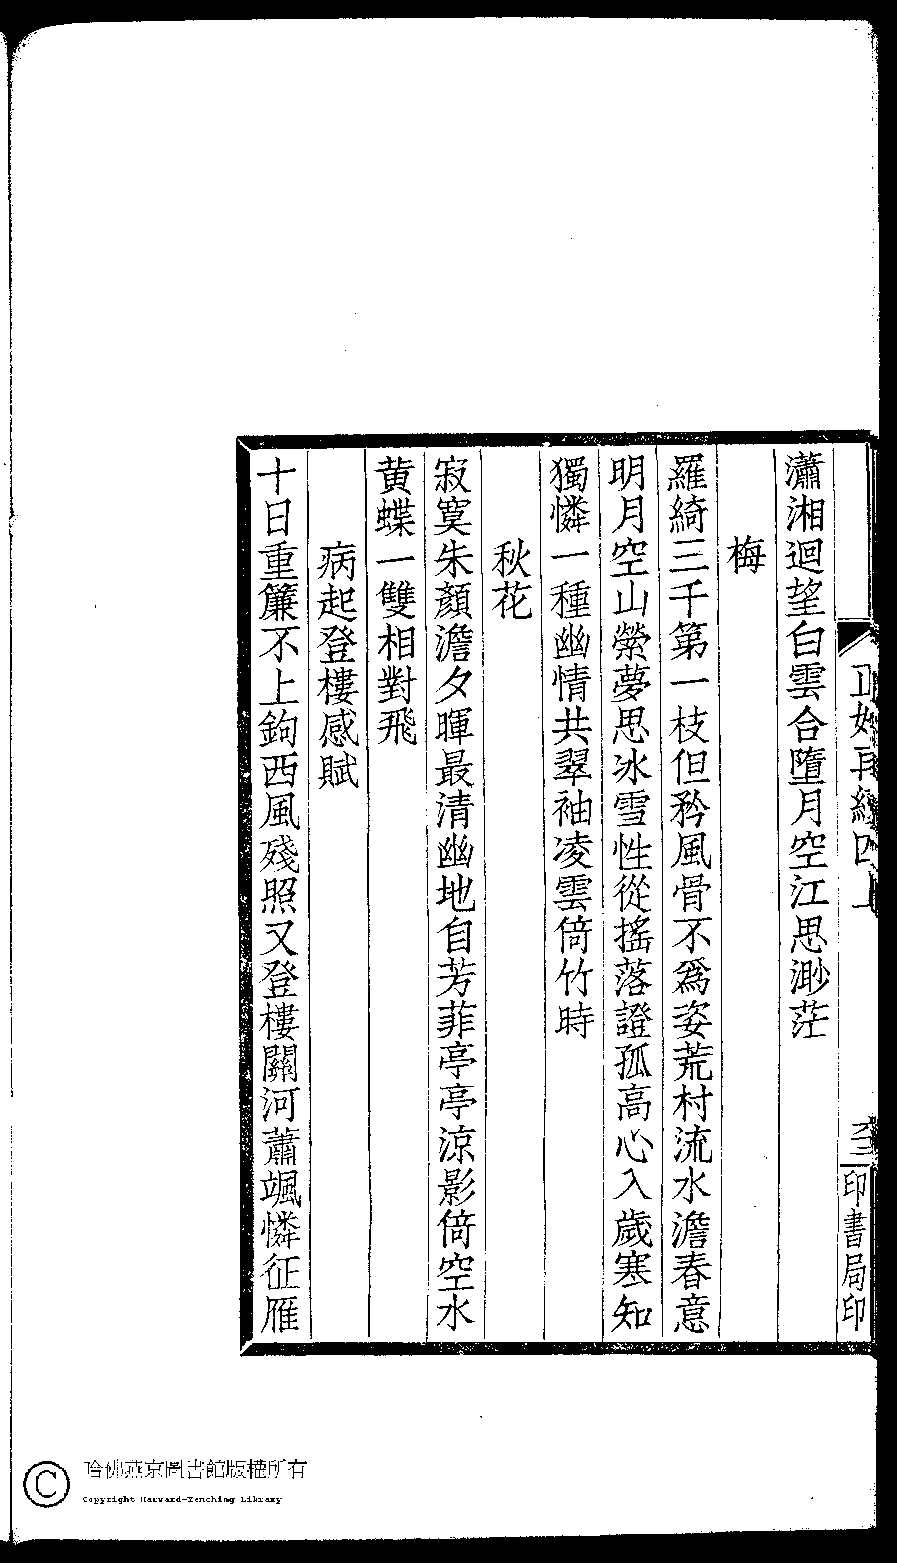 瀟湘迴望白雲合墮月空江思渺茫
梅
羅綺三千第一枝但矜風骨不爲姿荒村流水澹春意
明月空山縈夢思冰雪性從搖落證孤高心入歲寒知
獨憐一種幽情共翠袖凌雲倚竹時
秋花
寂寞朱顏澹夕暉最清幽地自芳菲亭亭涼影倚空水
黃蝶一雙相對飛
病起登樓感賦
十日重簾不上鉤西風殘照又登樓關河蕭颯憐征雁
印書局印
哈佛燕京圖書館版權所有
Copyright Harvard-Yenching Library